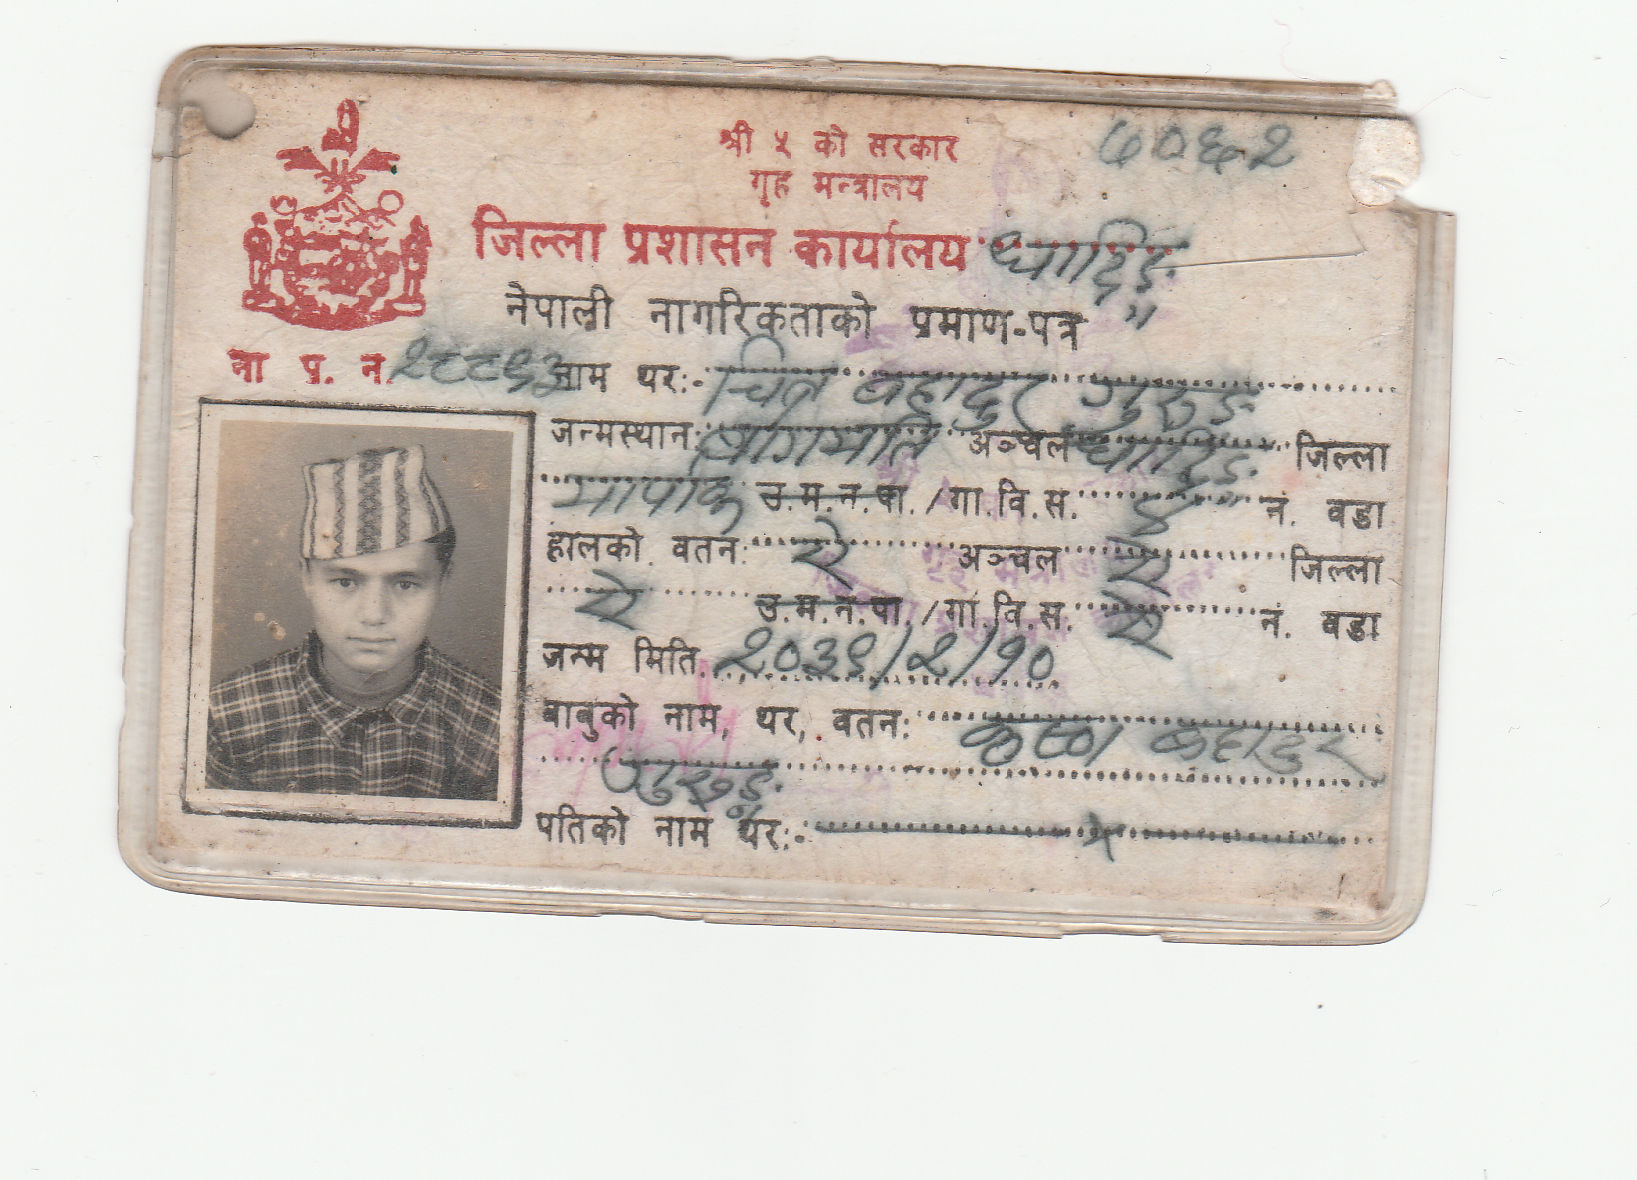 श्री ५ को सरकार
७०६२
गृह मन्त्रालय
जिल्ला प्रशासन कार्यालय धादिङ्ग
नेपाली नागरिकताको प्रमाण-पत्र
ना प्र. न. २८८९३ नाम थर:- चित्र बहादुर गुरुङ्ग
जन्मस्थान: बागमति अञ्चल धादिङ्ग जिल्ला
मार्पाक उ.म.न.पा./गा.वि.स. ४ नं. वडा
हालको वतन: ऐ अञ्चल ऐ जिल्ला
ऐ उ.म.न.पा./गा.वि.स. ऐ नं. वडा
जन्म मिति. २०३९/२/१०
बाबुको नाम, थर, वतन: कृष्ण बहादुर
गुरुङ्ग
पतिको नाम थर:- x